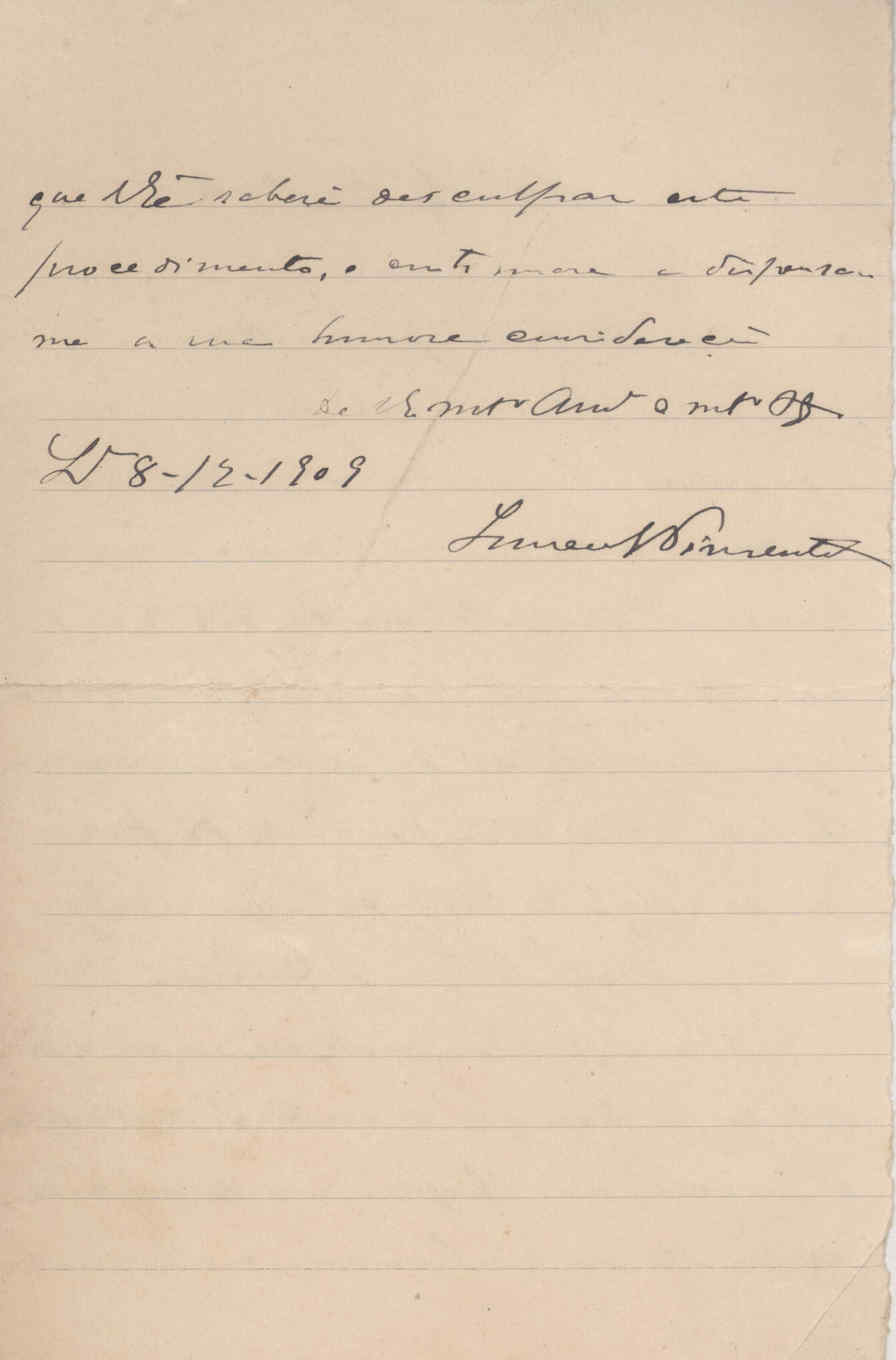 que VExª saberá desculpar este
procedimento, e continuará a dispensar
me a sua honrosa consideração
De VE mtº Amº e mtº
Lx 8-12-1909
Pimentel